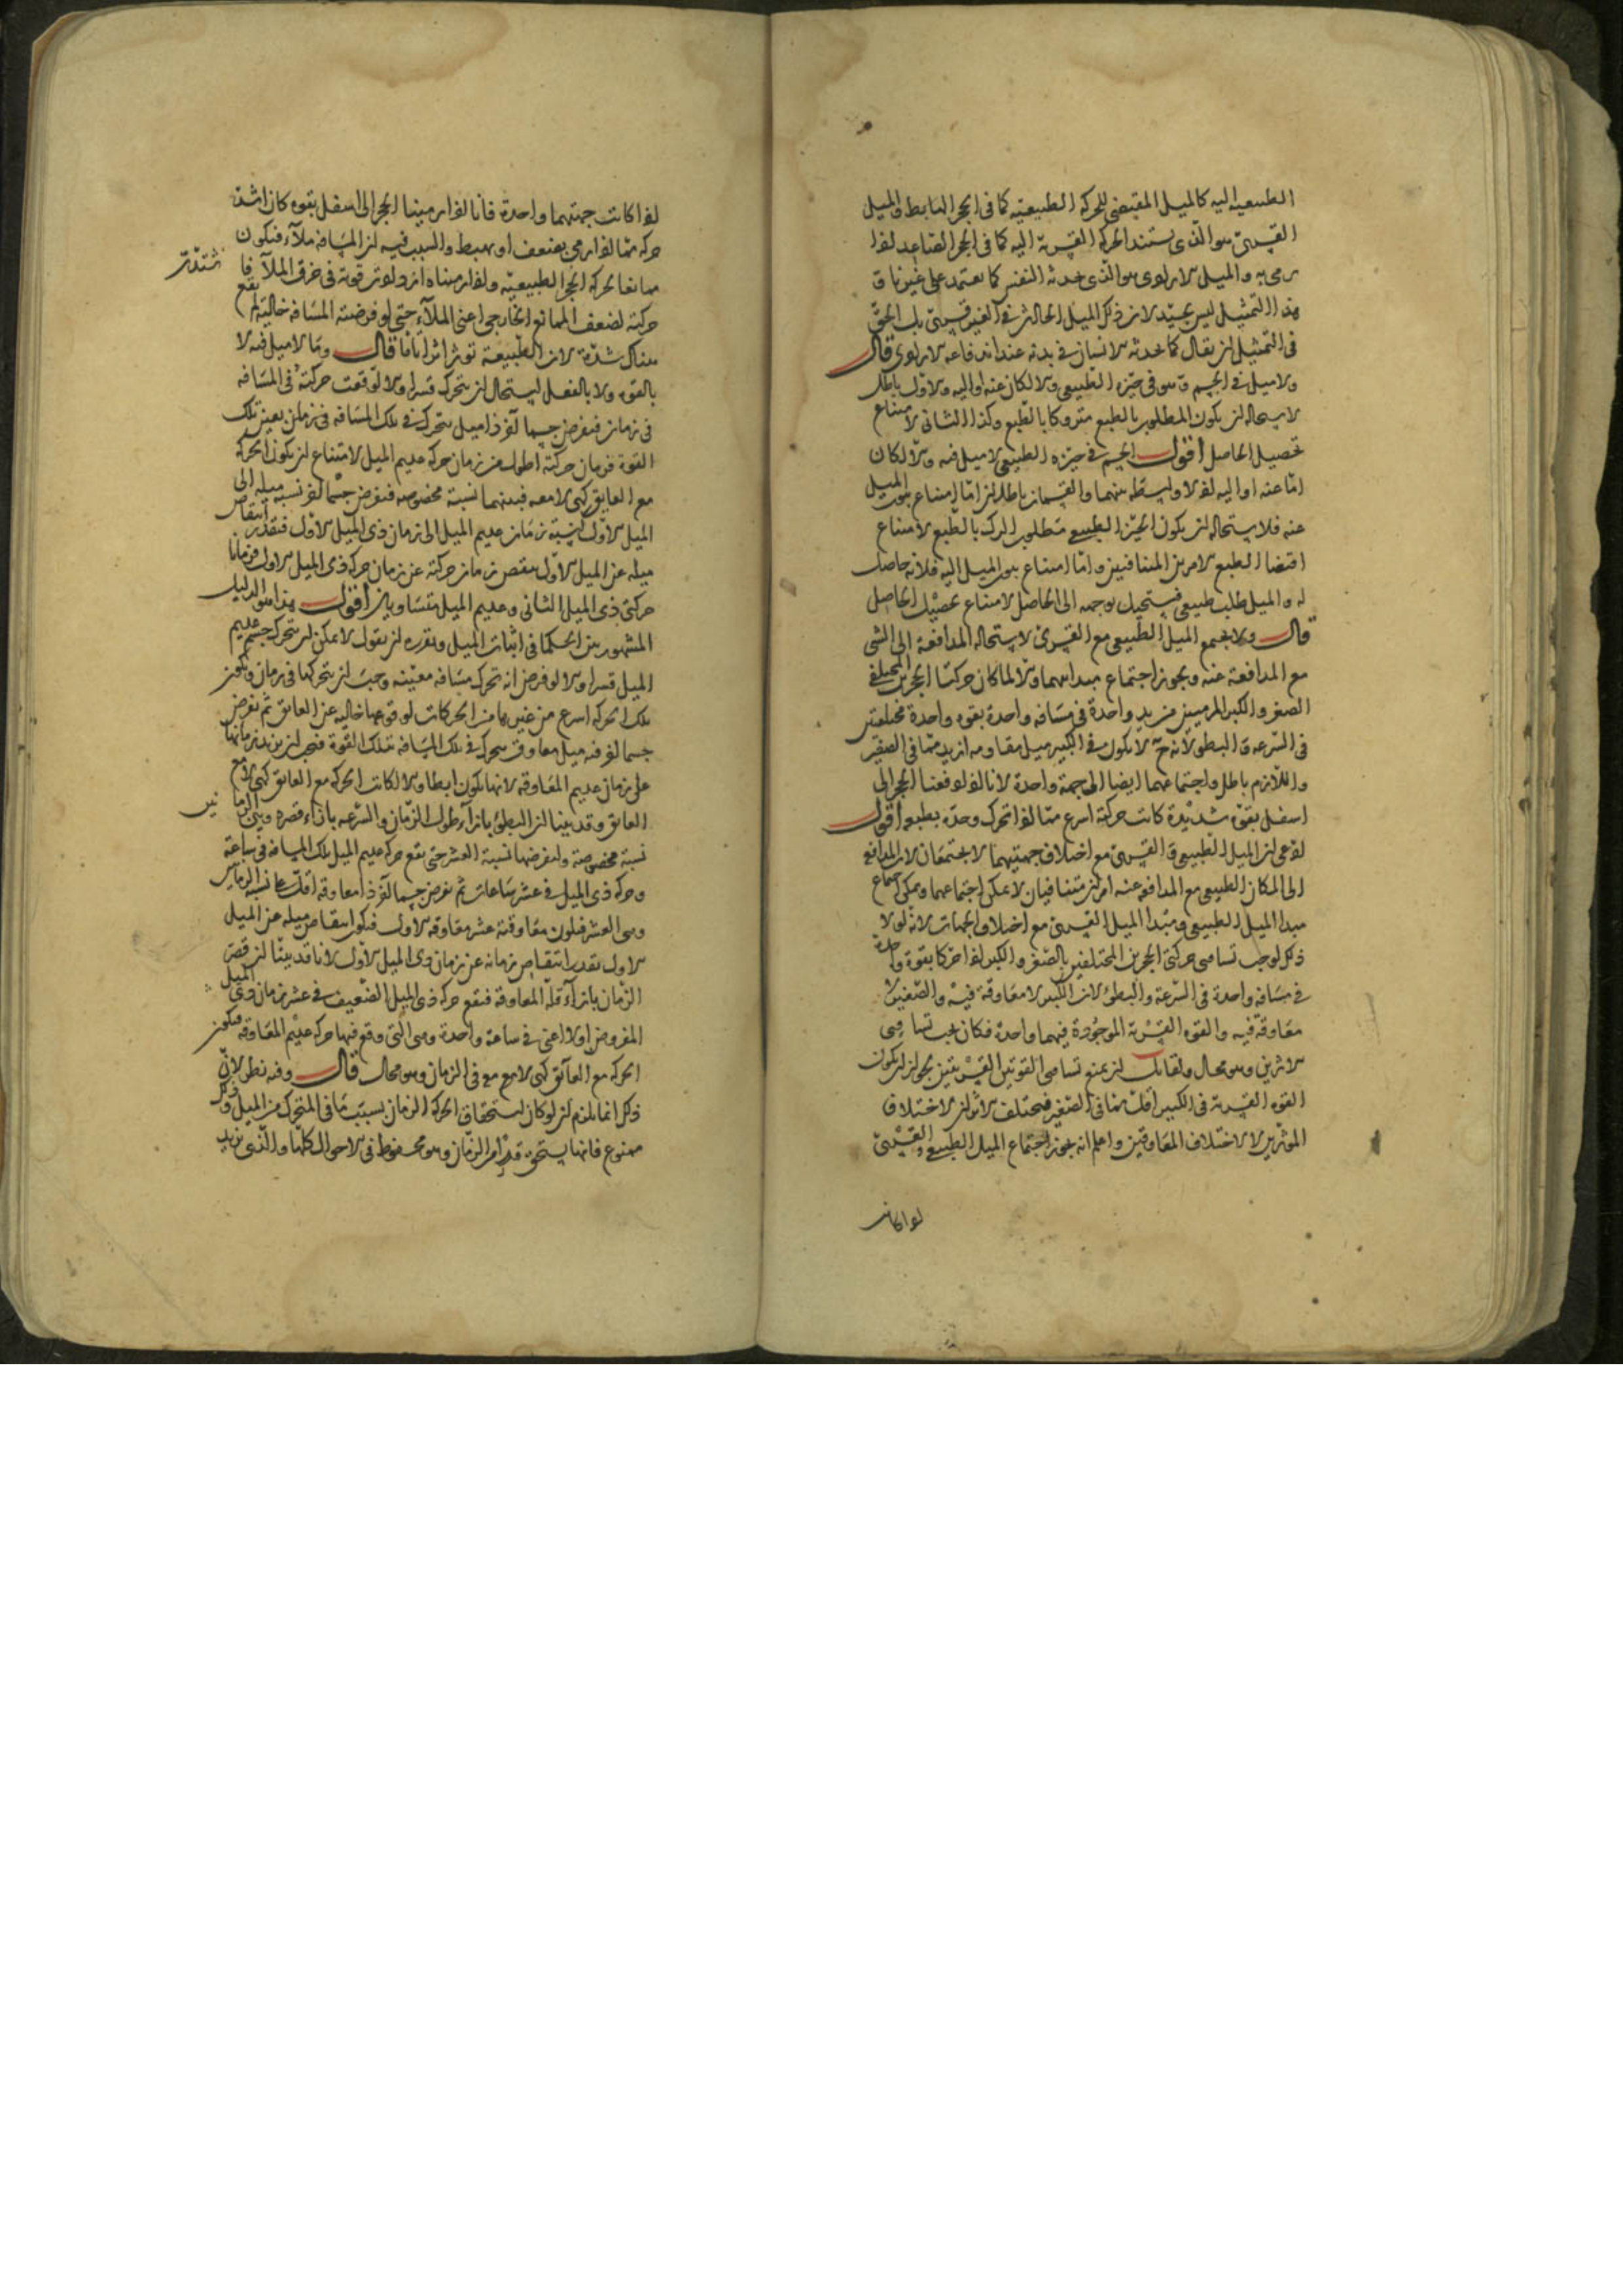 الطبيعية اليه كالميل المقتضي للحركة الطبيعية كما في الحجر الهابط والميل
القسري هو الذي يستند الحركة القسرية اليه كما في الحجر الصاعد اذا
رمي به والميل الارادي هو الذي يحدثه النفس كما يعتمد على غيرنا و
هذا التمثيل ليس بجيد لان ذلك الميل الحادث في الغير قسري بل الحق
في التمثيل ان يقال كما يحدثه الانسان في بدنه عند اندفاعه الارادي قال
ولا ميل في الجسم وهو في حيزه الطبيعي والا لكان عنه او اليه والاول باطل
لاستحالة ان يكون المطلوب بالطبع متروكا بالطبع وكذا الثاني لامتناع
تحصيل الحاصل اقول الجسم في حيزه الطبيعي لا ميل فيه والا لكان
اما عنه او اليه اذ لا واسطة بينهما والقسمان باطلان اما امتناع هو الميل
عنه فلاستحالة ان يكون الحيز الطبيعي مطلوب الترك بالطبع لامتناع
اقتضاء الطبع الامرين المتنافيين واما امتناع هو الميل اليه فلانه حاصل
له والميل طلب طبيعي فيستحيل توجهه الى الحاصل لامتناع تحصيل الحاصل
قال ولا يجتمع الميل الطبيعي مع القسري لاستحالة المدافعة الى الشي
مع المدافعة عنه ويجوز اجتماع مبدأيهما والا لما كان حركتا الحجرين المختلفي
الصغر والكبر المرميين من يد واحدة في مسافة واحدة بقوة واحدة مختلفتين
في السرعة والبطو لانه ح لا يكون في الكبير ميل مقاومه ازيد مما في الصغير
واللازم باطل واجتماعهما ايضا الى جهة واحدة لانا اذا دفعنا الحجر الى
اسفل بقوة شديدة كانت حركته اسرع مما اذا تحرك وحده بطبعه اقول
ادعى ان الميل الطبيعي والقسري مع اختلاف جهتيهما لا يجتمعان لان المدافع
الى المكان الطبيعي مع المدافعة عنه امران متنافيان لا يمكن اجتماعهما ويمكن اجتماع
مبدا الميل الطبيعي ومبدا الميل القسري مع اختلاف الجهات لانه لولا
ذلك لوجب تساوي حركتي الحجرين المختلفين بالصغر والكبر اذا حركا بقوة واحدة
في مسافة واحدة في السرعة والبطؤ لان الكبير لا معاوقة فيه والصغير لا
معاوقة فيه والقوة القسرية الموجودة فيهما واحدة فكان يجب تساوي
الاثرين وهو محال ولقائل ان يمنع تساوي القوتين القسريتين بجواز ان يكون
القوة القسرية في الكبير اقل مما في الصغير فيختلف الاثر لاختلاف
المؤثرين لا لاختلاف المعاوقين واعلم انه يجوز اجتماع الميل الطبيعي والقسري
اذا كانت
اذا كانت جهتهما واحدة فانا اذا رمينا الحجر الى اسفل بقوة كان اشد
حركة مما اذا رمي بضعف او يهبط والسبب فيه ان المسافة ملاء فيكون
ممانعا لحركة الحجر الطبيعية واذا رميناه ازدادت قوته في خرق الملا فا
شتدت
حركته لضعف الممانع الخارجي اعني الملاء حتى لو فرضت المسافة خالية لم يقع
هناك شدة لان الطبيعة تؤثر اثرا تاما قال وما لا ميل فيه لا
بالقوة ولا بالفعل يستحال ان يتحرك قسرا والا لوقعت حركته في المسافة
في زمان فنفرض جسما آخر ذا ميل يتحرك في تلك المسافة في زمان بعين تلك
القوة فزمان حركته اطول من زمان حركة عديم الميل لامتناع ان يكون الحركة
مع العايق كهي لا معه فبينهما نسبة مخصوصة فنفرض جسما آخر نسبة ميله الى
الميل الاول كنسبة زمان عديم الميل الى زمان ذي الميل الاول فبقدر انتقاص
ميله عن الميل الاول ينقص زمان حركته عن زمان حركة ذي الميل الاول فزمانا
حركتي ذي الميل الثاني وعديم الميل متساويان اقول هذا هو الدليل
المشهور بين الحكما في اثبات الميل وتقريره ان يقول لا يمكن ان يتحرك جسم عديم
الميل قسرا والا لو فرض انه تحرك مسافة معينة وجب ان يتحركها في زمان ويكون
تلك الحركة اسرع من غيرها من الحركات لوقوعها خالية عن العايق ثم نفرض
جسما آخر فيه ميل معاوق يتحرك في تلك المسافة بتلك القوة فيجب ان يزيد زمانها
على زمان عديم المعاوقة لانها تكون ابطا والا لكانت الحركة مع العايق كهي لا مع
العايق وقد بينا ان البطؤ بازاء طول الزمان والسرعة بازاء قصره وبين الزما
نين
نسبة مخصوصة ولنفرضها نسبة العشر حتى يقع حركة عديم الميل تلك المسافة في ساعة
وحركة ذي الميل في عشر ساعات ثم نفرض جسما آخر ذا معاوقة اقل على نسبة الزمانين
وهي العشر فيكون معاوقته عشر معاوقة الاول فيكون انتقاص ميله عن الميل
الاول بقدر انتقاص زمانه عن زمان ذي الميل الاول لانا قد بينا ان قصر
الزمان بازاء قلة المعاوقة فيقع حركة ذي الميل الضعيف في عشر زمان ذي الميل
المفروض اولا اعني في ساعة واحدة وهي التي وقع فيها حركة عديم المعاوقة فيكون
الحركة مع العائق كهي لا مع مع في الزمان وهو محال قال وفيه نظر لان
ذلك انما يلزم ان لو كان استحقاق الحركة الزمان بسبب ما في المتحرك من الميل وذلك
ممنوع فانها يستحق قدرا من الزمان وهو محفوظ في الاحوال كلها والذي يزيد